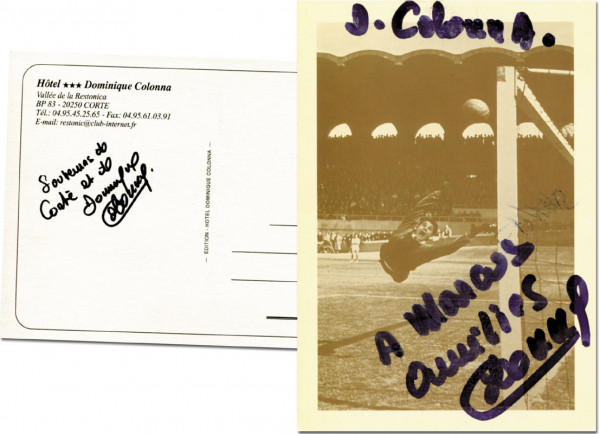 Hôtel ★★★ Dominique Colonna
Vallée de la Restonica
BP 83 - 20250 CORTE
Tél.: 04.95.45.25.65 - Fax: 04.95.61.03.91
E-mail: restonic@club-internet.fr
Souvenirs de
Corté et de
Dominique
Colonna
— ÉDITION - HOTEL DOMINIQUE COLONNA —
D. Colonna.
A Marcus
Amitiés
Colonna